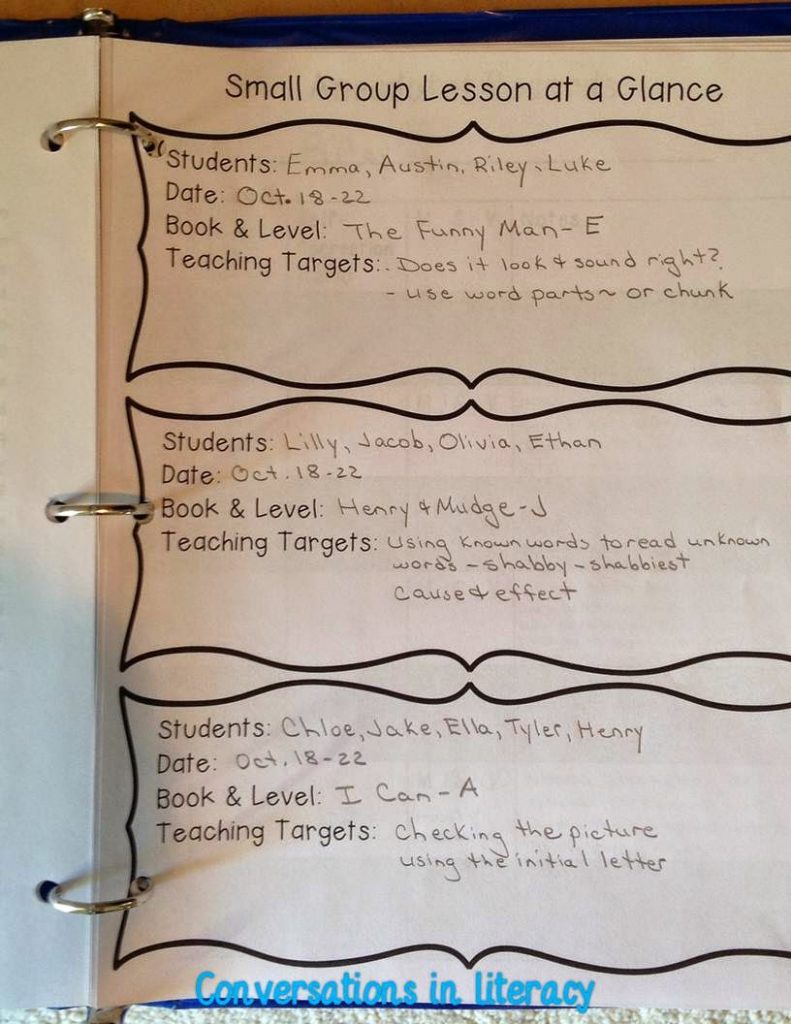 Small Group Lesson at a Glance
Students: Emma, Austin, Riley, Luke
Date: Oct. 18-22
Book & Level: The Funny Man- E
Teaching Targets: . Does it look & sound right?
- use word parts ~ or chunk
Students: Lilly, Jacob, Olivia, Ethan
Date: Oct. 18-22
Book & Level: Henry & Mudge-J
Teaching Targets: Using known words to read unknown
words - shabby - shabbiest
Cause & effect
Students: Chloe, Jake, Ella, Tyler, Henry
Date: Oct. 18-22
Book & Level: I Can - A
Teaching Targets: Checking the picture
using the initial letter
Conversations in literacy